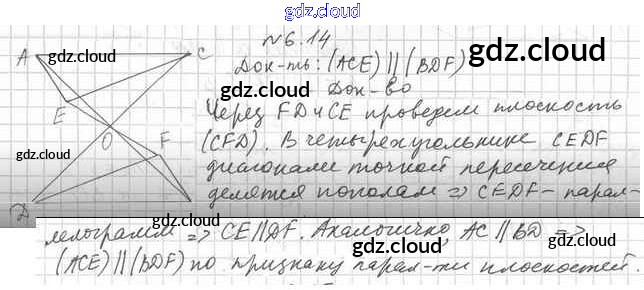 gdz.cloud
№6.14
A
C
gdz.cloud
gdz.cloud
Док-ть: (ACE) || (BDF)
gdz.cloud
Док-во
E
Через FD и CE проведем плоскость
O
gdz.cloud
F
(CFD). В четырехугольнике CEDF
gdz.cloud
диагонали точкой пересечения
gdz.cloud
D
делятся пополам => CEDF - парал-
лелограмм => CE || DF. Аналогично, AC || BD =>
gdz.cloud
gdz.cloud
(ACE) || (BDF) по признаку парал-ти плоскостей.